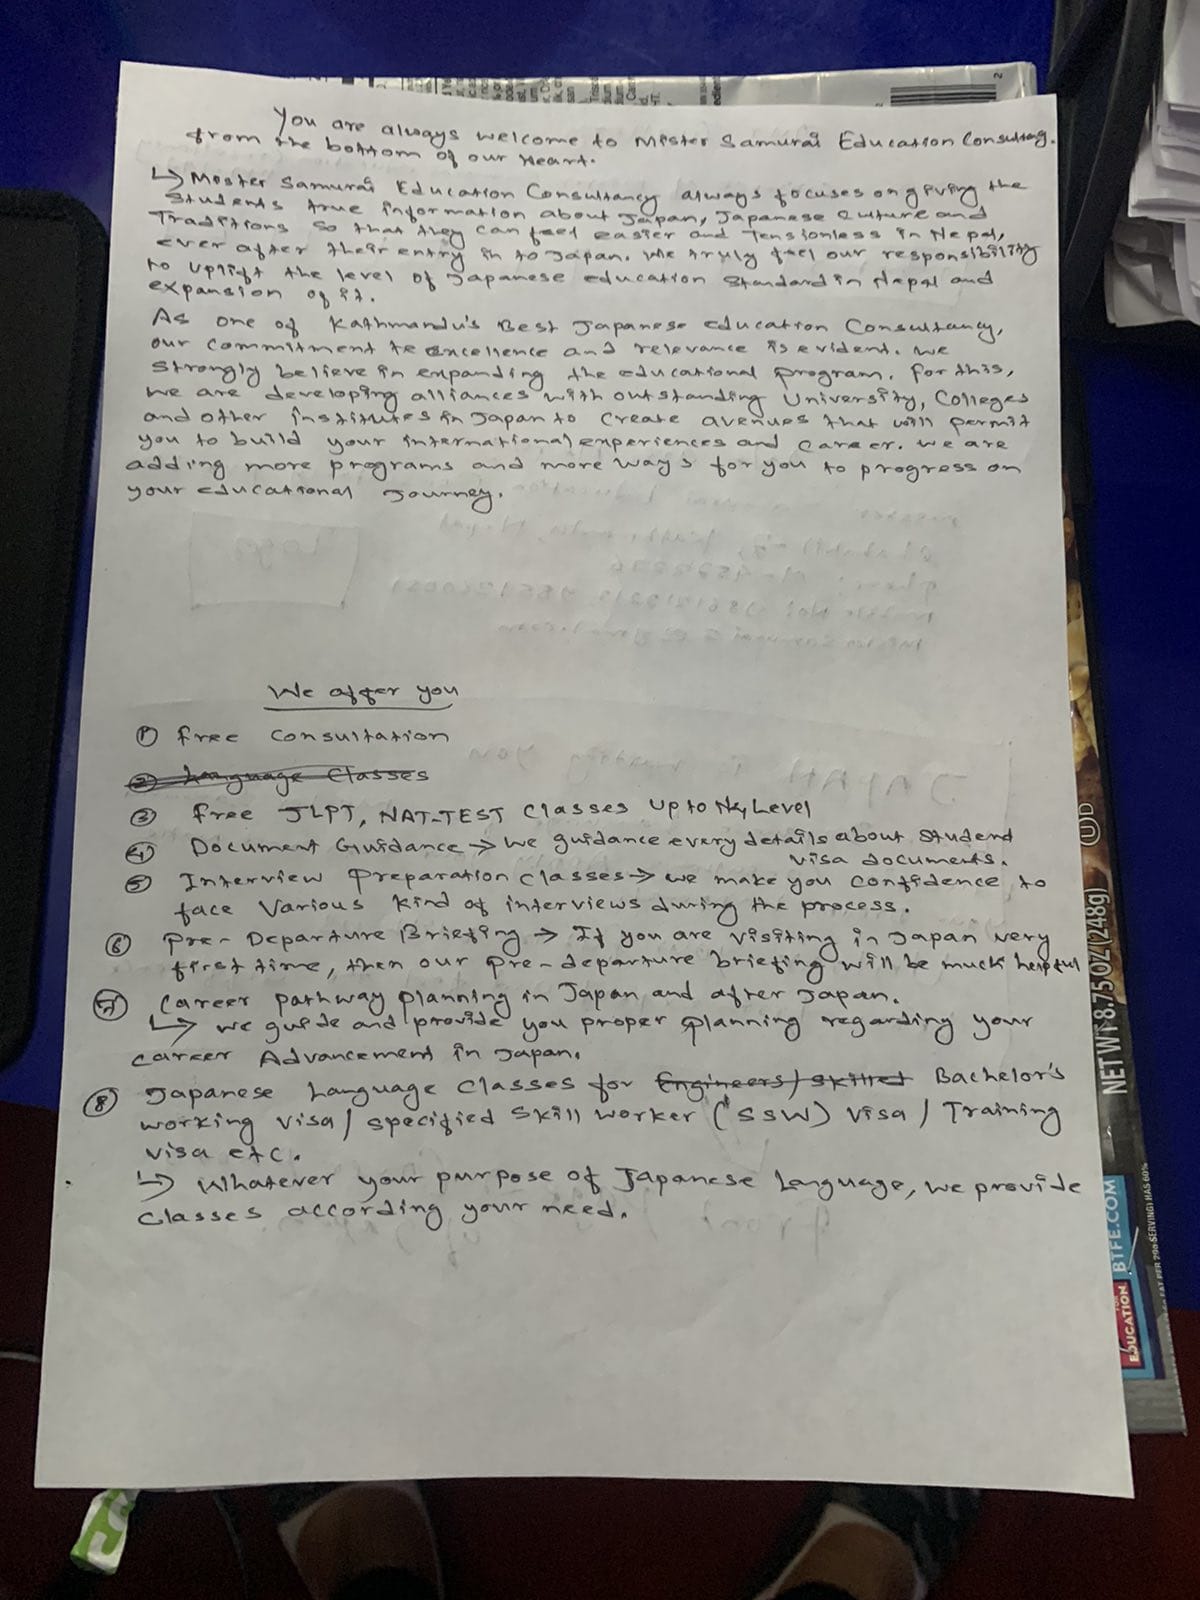 You are always welcome to Mister Samurai Education Consultancy.
from the bottom of our Heart.
↳ Mister Samurai Education Consultancy always focuses on giving the
Students true information about Japan, Japanese culture and
Traditions so that they can feel easier and Tensionless in Nepal,
ever after their entry in to Japan. We truly feel our responsibility
to uplift the level of Japanese education Standard in Nepal and
expansion of it.
As one of Kathmandu's Best Japanese education Consultancy,
our commitment to excellence and relevance is evident. We
Strongly believe in expanding the educational program. For this,
we are developing alliances with outstanding University, Colleges
and other institutes in Japan to Create avenues that will permit
you to build your international experiences and career. We are
adding more programs and more ways for you to progress on
your educational Journey.
We offer you
① Free Consultation
② Language Classes
③ Free JLPT, NAT-TEST Classes Up to Level
④ Document Guidance → We guidance every details about Student
visa documents.
⑤ Interview Preparation Classes → We make you confidence to
face Various kind of interviews during the process.
⑥ Pre-Departure Briefing → If you are visiting in Japan very
first time, then our Pre-departure briefing will be much helpful
⑦ Career pathway planning in Japan and after Japan.
↳ We guide and provide you proper planning regarding your
career Advancement in Japan.
⑧ Japanese Language Classes for Engineers/skilled Bachelor's
working visa / specified Skill Worker (SSW) Visa / Training
visa etc.
↳ Whatever your purpose of Japanese Language, we provide
Classes according your need.
NET WT 8.75 OZ (248g)
FOR EDUCATION
BTFE.COM